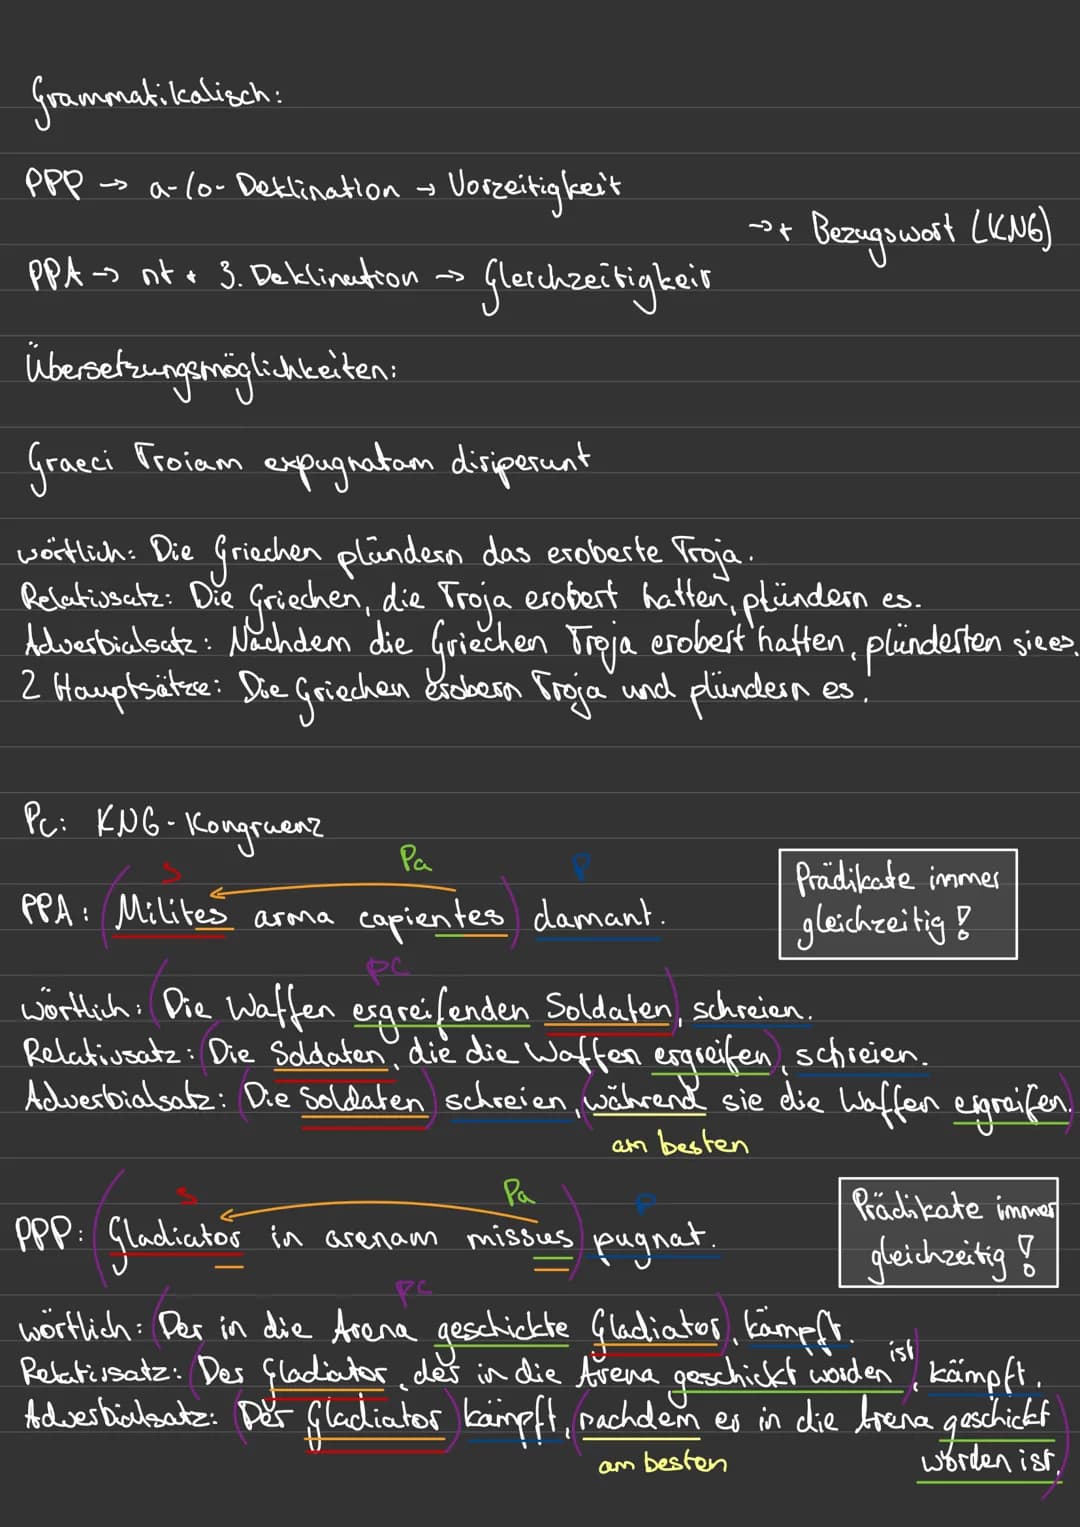 Grammatikalisch:
PPP → a-/o- Deklination → Vorzeitigkeit
→ + Bezugswort (KNG)
PPA → nt + 3. Deklination → Gleichzeitigkeit
Übersetzungsmöglichkeiten:
Graeci Troiam expugnatam diriperunt
wörtlich: Die Griechen plündern das eroberte Troja.
Relativsatz: Die Griechen, die Troja erobert hatten, plündern es.
Adverbialsatz: Nachdem die Griechen Troja erobert hatten, plünderten sie es.
2 Hauptsätze: Die Griechen erobern Troja und plündern es.
Pc: KNG-Kongruenz
S Pa P
PPA: (Milites arma capientes) clamant.
Prädikate immer
gleichzeitig!
PC
wörtlich: (Die Waffen ergreifenden Soldaten), schreien.
Relativsatz: (Die Soldaten, die die Waffen ergreifen), schreien.
Adverbialsatz: (Die Soldaten) schreien, (während sie die Waffen ergreifen.)
am besten
S Pa P
PPP: (Gladiator in arenam missus) pugnat.
Prädikate immer
gleichzeitig!
PC
wörtlich: (Der in die Arena geschickte Gladiator), kämpft.
Relativsatz: (Der Gladiator, der in die Arena geschickt worden ist), kämpft.
Adverbialsatz: (Der Gladiator) kämpft, (nachdem er in die Arena geschickt
worden ist.)
am besten